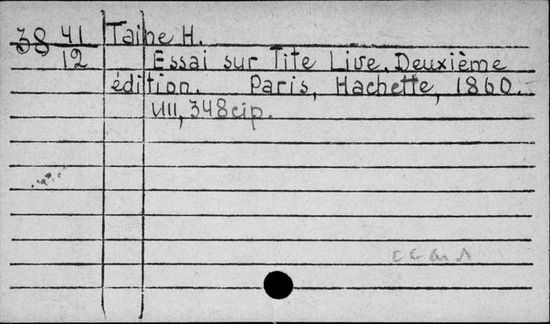 38 41 Taine H.
12 Essai sur Tite Live. Deuxième
édition. Paris, Hachette, 1860.-
VIII, 348cip.